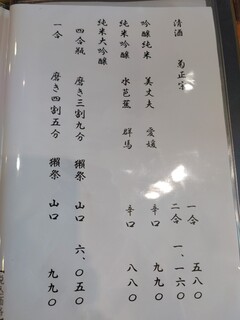 清酒 菊正宗 一合 五八〇
二合 一、一六〇
吟醸純米 美丈夫 愛媛 辛口 九九〇
純米吟醸 水芭蕉 群馬 辛口 八八〇
純米大吟醸
四合瓶 磨き三割九分 獺祭 山口 六、〇五〇
一合 磨き四割五分 獺祭 山口 九九〇